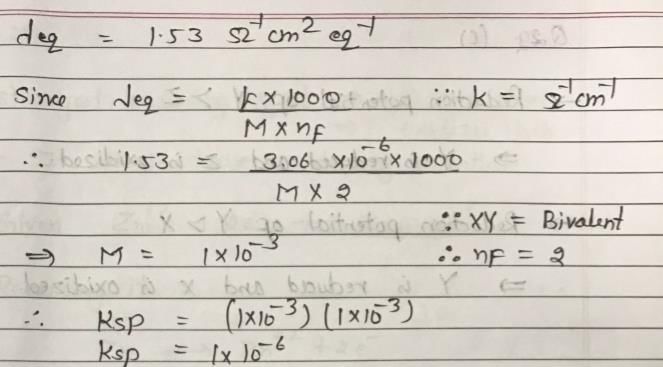 λeq = 1.53 Ω⁻¹ cm² eq⁻¹
Since λeq = K×1000 / M×nf ∵ k = Ω⁻¹ cm⁻¹
∴ 1.53 = 3.06 ×10⁻⁶×1000 / M×2
∵ XY = Bivalent
⇒ M = 1×10⁻³ ∴ nf = 2
∴ Ksp = (1×10⁻³) (1×10⁻³)
Ksp = 1×10⁻⁶